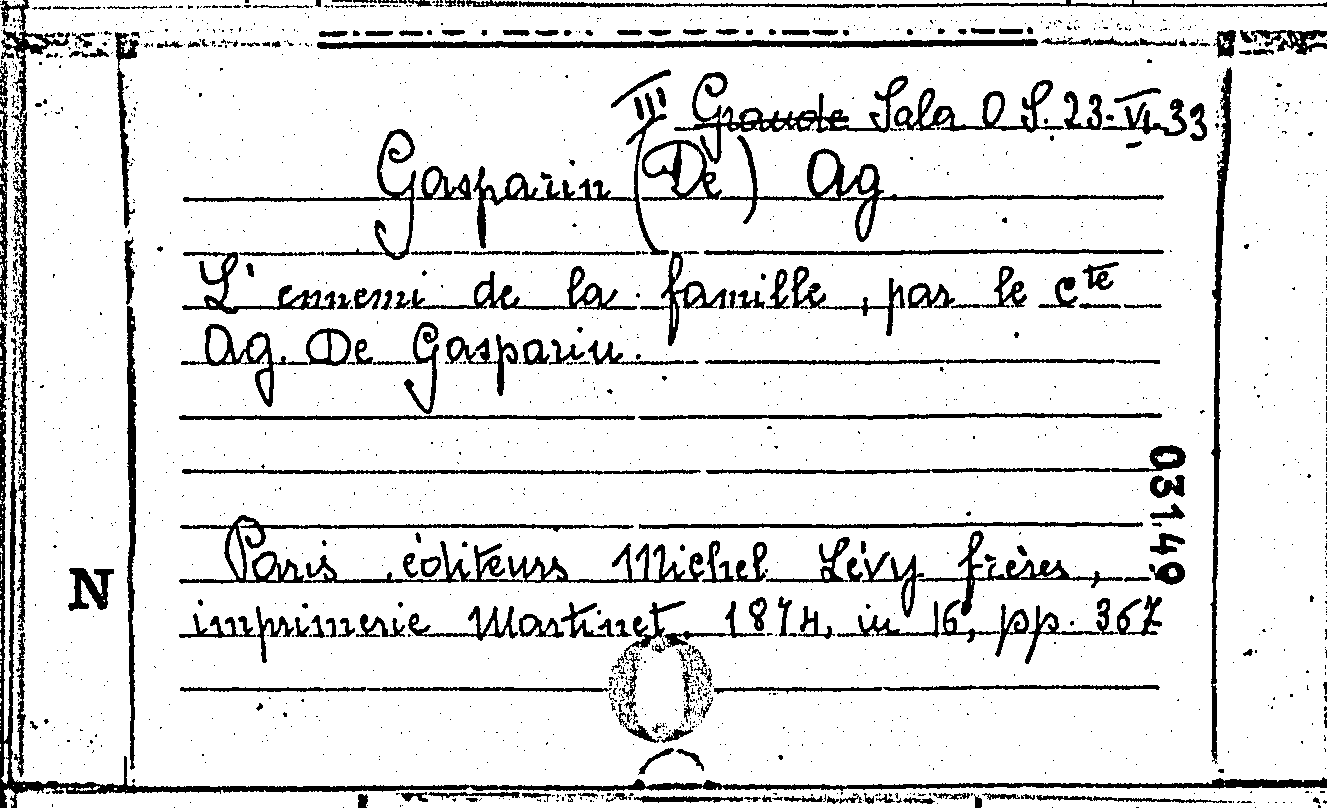 III Grande Sala O S. 23. VI. 33
Gasparin (De) Ag.
L'ennemi de la famille, par le cte
Ag. De Gasparin.
031409
Paris, éditeurs Michel Lévy frères,
N
imprimerie Martinet, 1874, in 16°, pp. 367